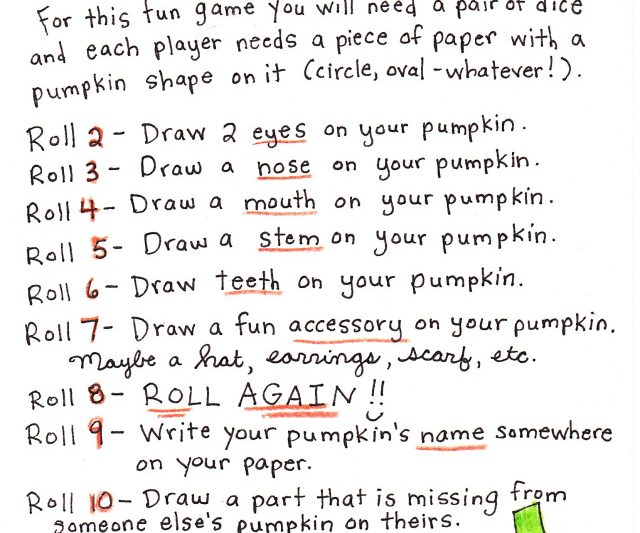 For this fun game you will need a pair of dice
and each player needs a piece of paper with a
pumpkin shape on it (circle, oval - whatever!).
Roll 2 - Draw 2 eyes on your pumpkin.
Roll 3 - Draw a nose on your pumpkin.
Roll 4 - Draw a mouth on your pumpkin.
Roll 5 - Draw a stem on your pumpkin.
Roll 6 - Draw teeth on your pumpkin.
Roll 7 - Draw a fun accessory on your pumpkin.
Maybe a hat, earrings, scarf, etc.
Roll 8 - ROLL AGAIN!!
Roll 9 - Write your pumpkin's name somewhere
on your paper.
Roll 10 - Draw a part that is missing from
someone else's pumpkin on theirs.